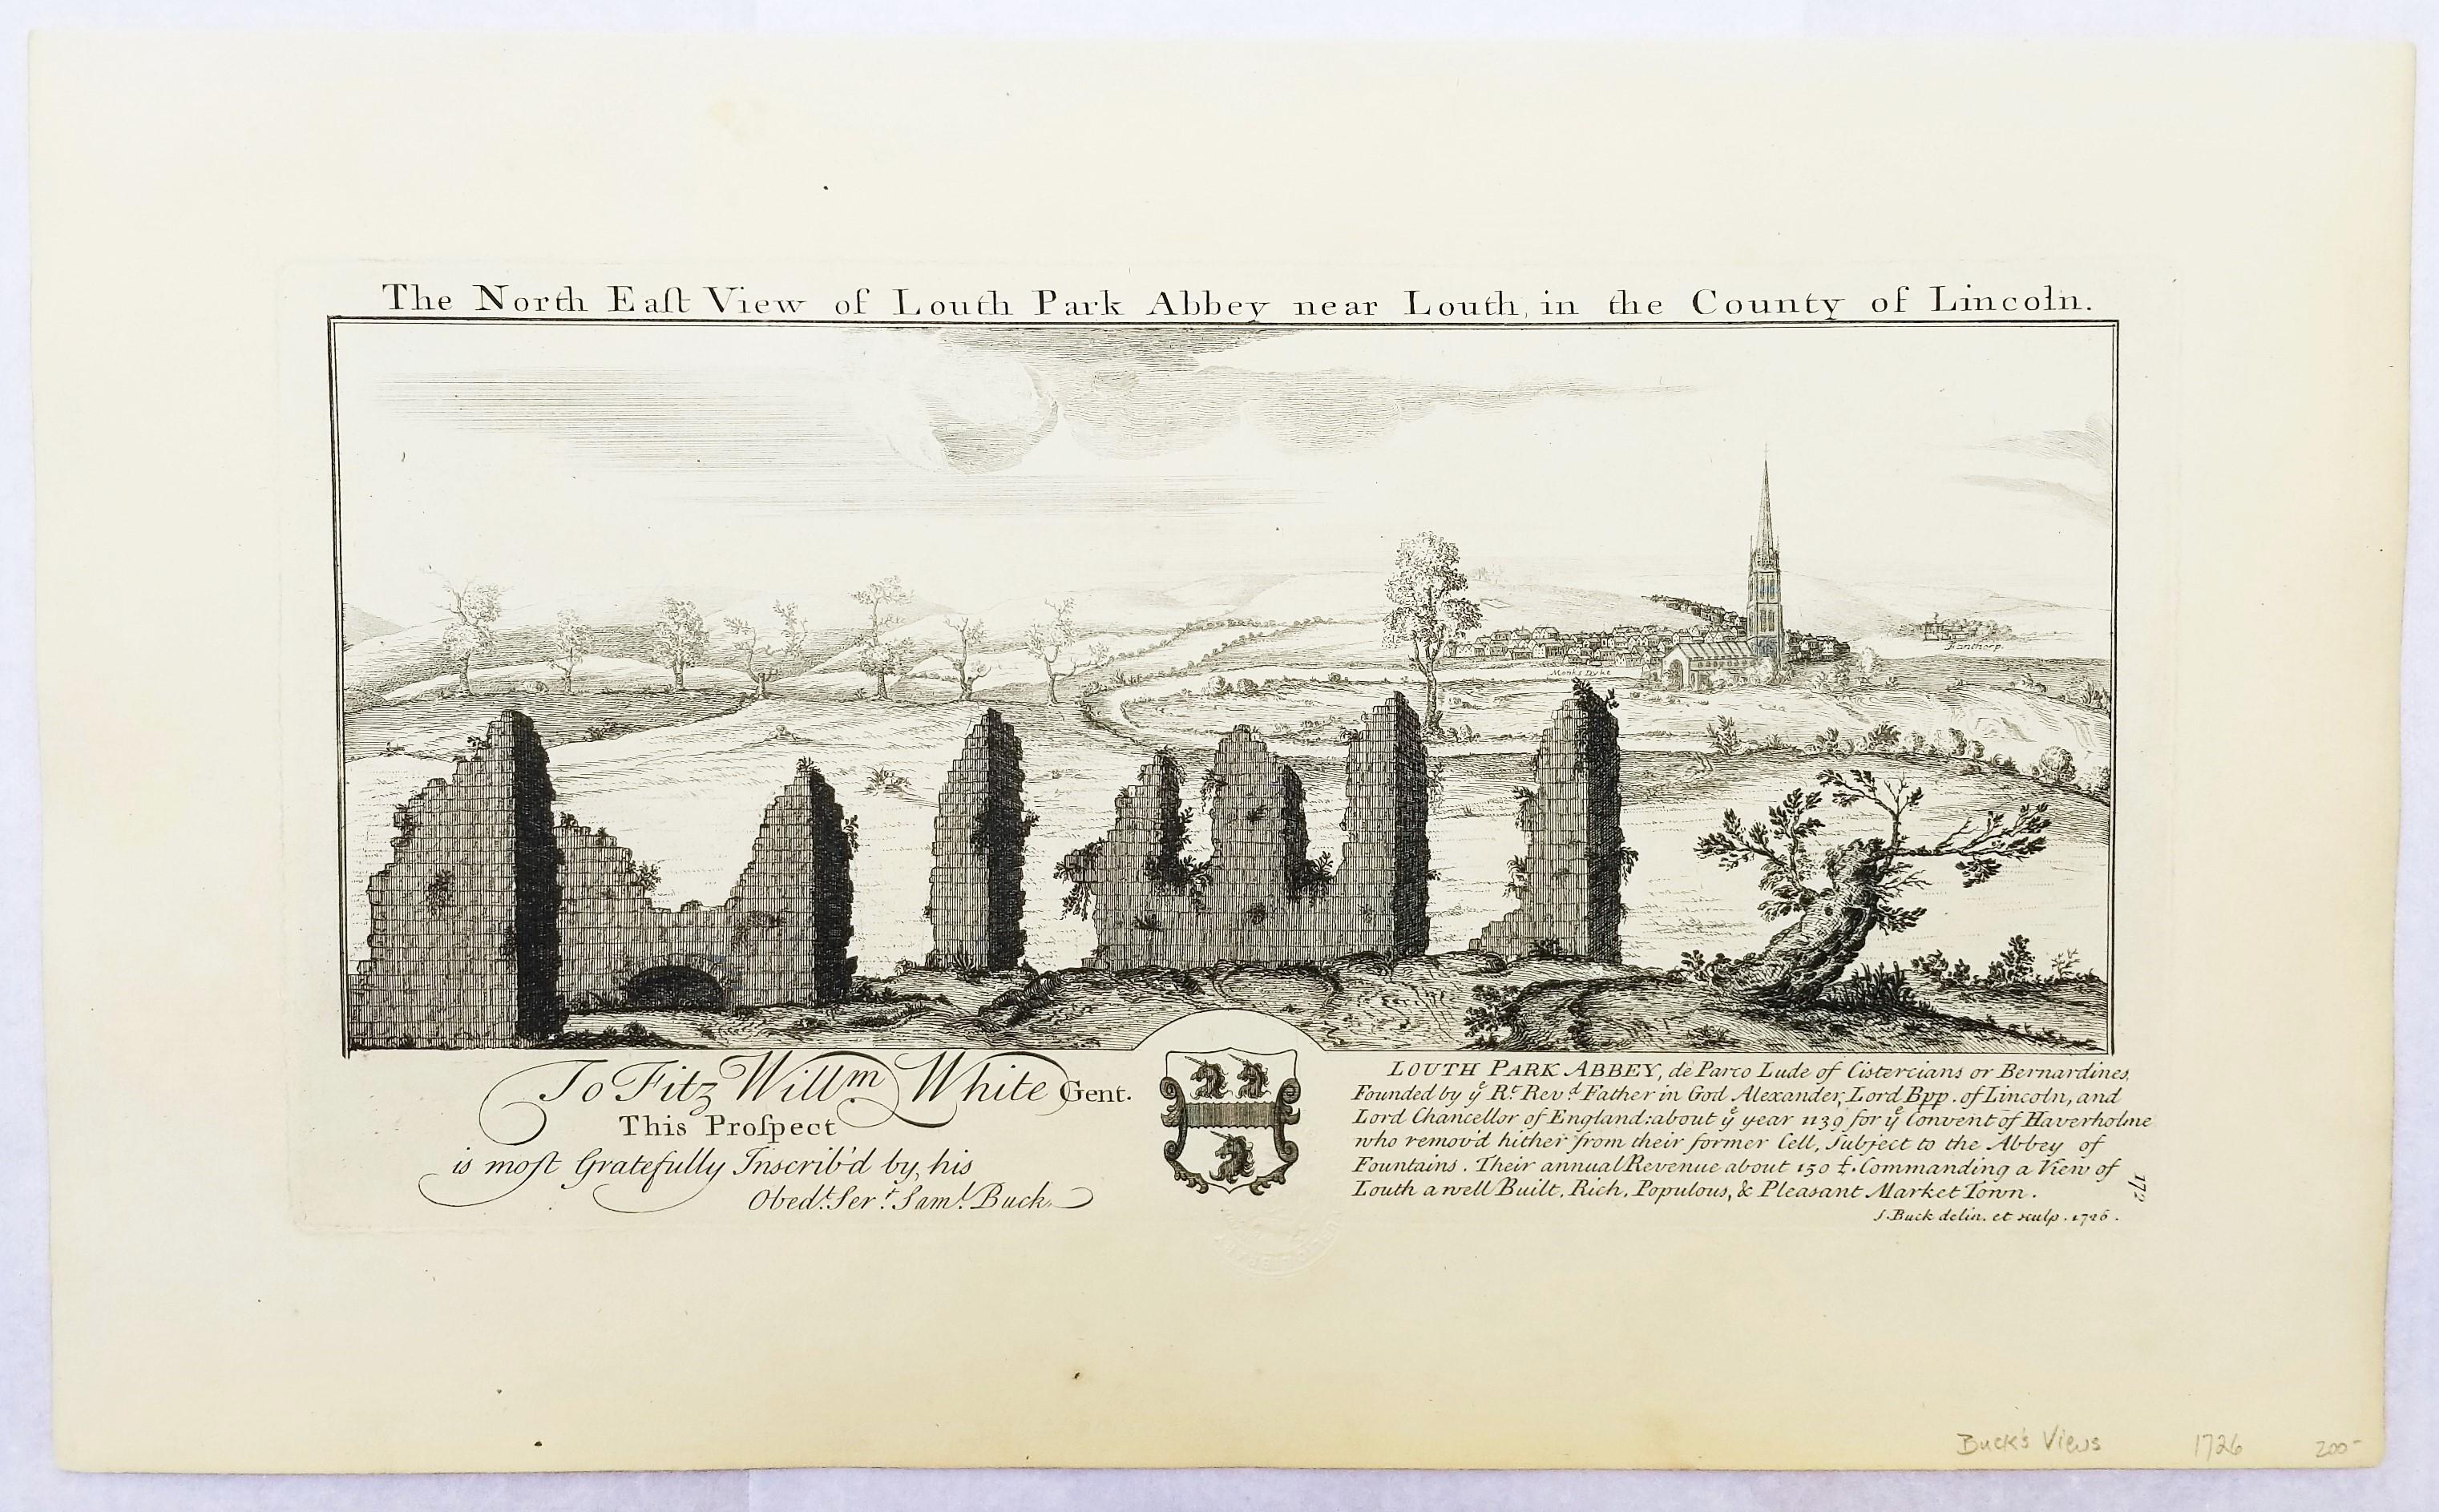 The North Eaſt View of Louth Park Abbey near Louth, in the County of Lincoln.
Fanthorp.
Monks Dyke
To Fitz Will.m White Gent.
This Proſpect
is moſt Gratefully Inscrib'd by, his
Obed.t Ser.t Sam.l Buck
LOUTH PARK ABBEY, de Parco Lude of Cistercians or Bernardines,
Founded by ye Rt. Revd. Father in God Alexander, Lord Bpp. of Lincoln, and
Lord Chancellor of England: about ye year 1139 for ye Convent of Haverholme
who remov'd hither from their former Cell, Subject to the Abbey of
Fountains. Their annual Revenue about 150 £. Commanding a View of
Louth a well Built, Rich, Populous, & Pleasant Market Town.
S. Buck delin. et sculp. 1726.
172
Buck's Views 1726 200-